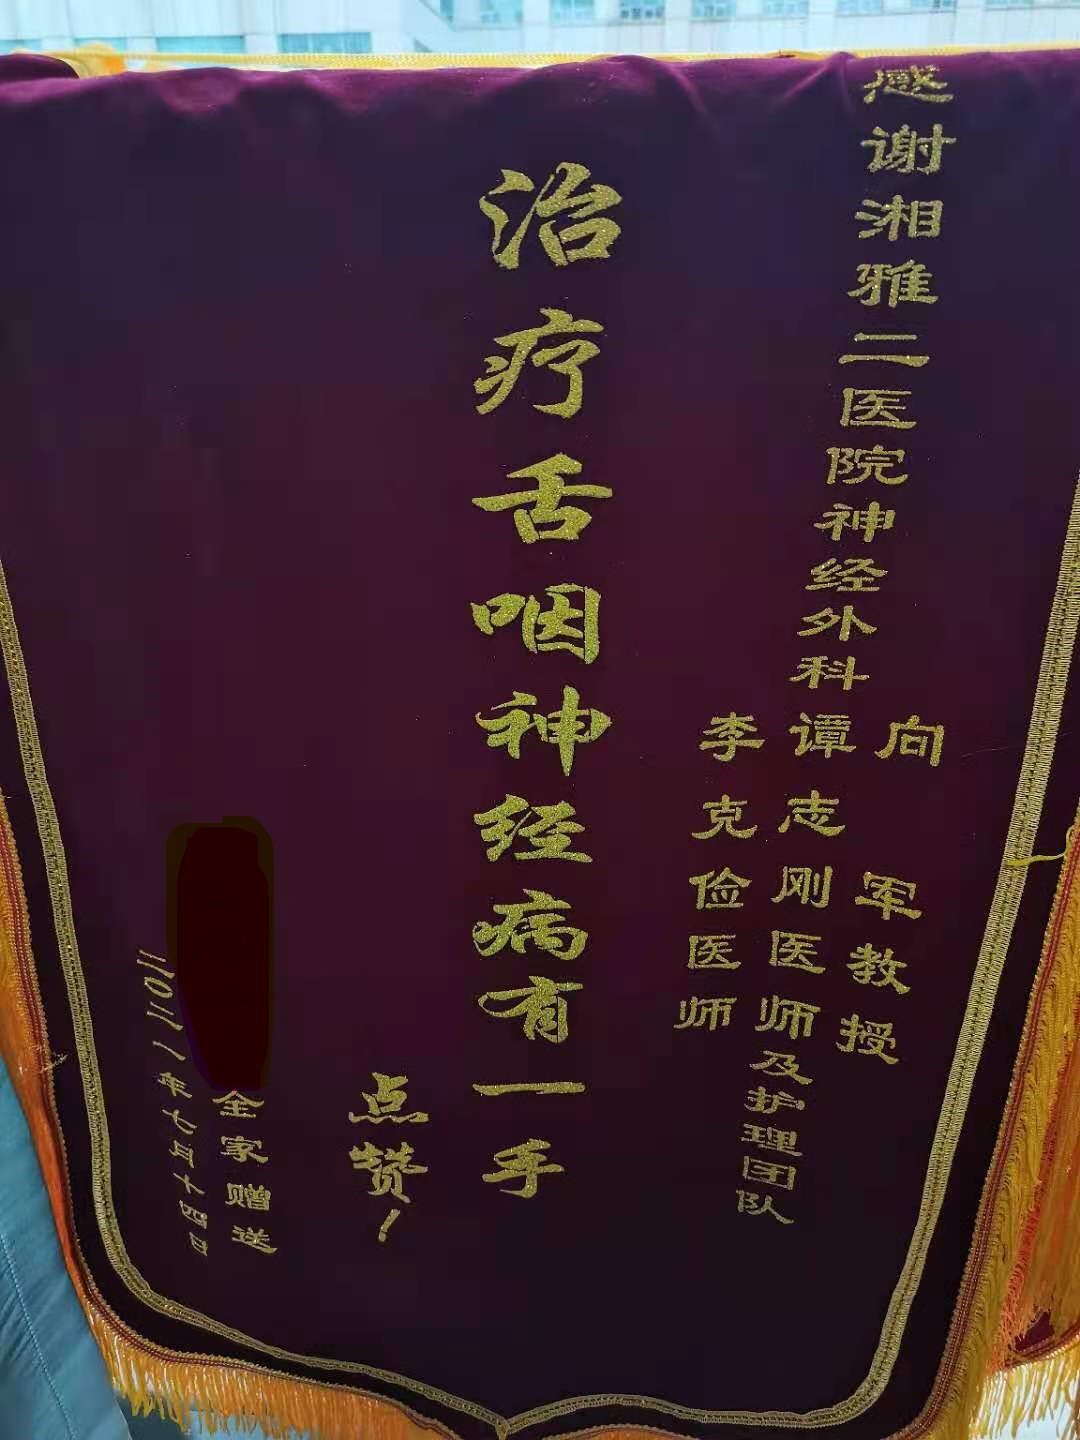 感谢湘雅二医院神经外科
向军教授
谭志刚医师及护理团队
李克俭医师
治疗舌咽神经病有一手
点赞！
全家赠送
二〇二一年七月十四日